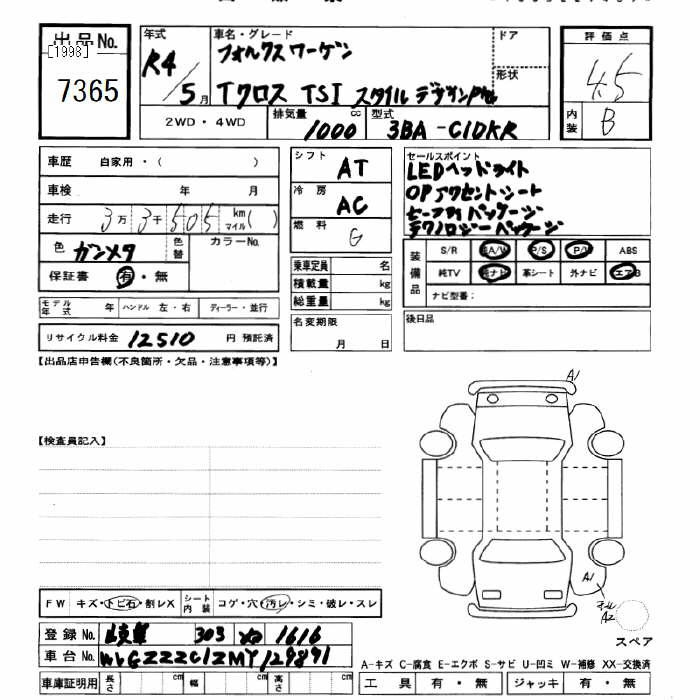 出品No.
[1998]
7365
年式
R4/5月
車名・グレード
フォルクスワーゲン
Tクロス TSI スタイル デザインPkg
ドア
形状
評価点
4.5
内装
B
2WD・4WD
排気量
1000
cc
型式
3BA-C1DKR
車歴
自家用・( )
車検
年 月
走行
3万3千505
km
マイル( )
色
ガンメタ
色替
カラーNo.
保証書
有・無
モデル年式
年
ハンドル 左・右
ディーラー・並行
リサイクル料金 12510 円 預託済
シフト
AT
冷房
AC
燃料
G
乗車定員 名
積載量 kg
総重量 kg
名変期限
月 日
セールスポイント
LEDヘッドライト
OPアクセントシート
セーフティパッケージ
テクノロジーパッケージ
装備品
S/R
A/W
P/S
P/W
ABS
純TV
純ナビ
革シート
外ナビ
エアB
ナビ型番:
後日品
【出品店申告欄(不良箇所・欠品・注意事項等)】
【検査員記入】
A1
A1
A2
スペア
FW
キズ・トビ石・割レX
シート内装
コゲ・穴・汚レ・シミ・破レ・スレ
登録No.
岐阜 303 1616
車台No.
WVGZZZC1ZMY129891
A-キズ C-腐食 E-エクボ S-サビ U-凹ミ W-補修 XX-交換済
車庫証明用
長さ cm
幅 cm
高さ cm
工具 有・無
ジャッキ 有・無